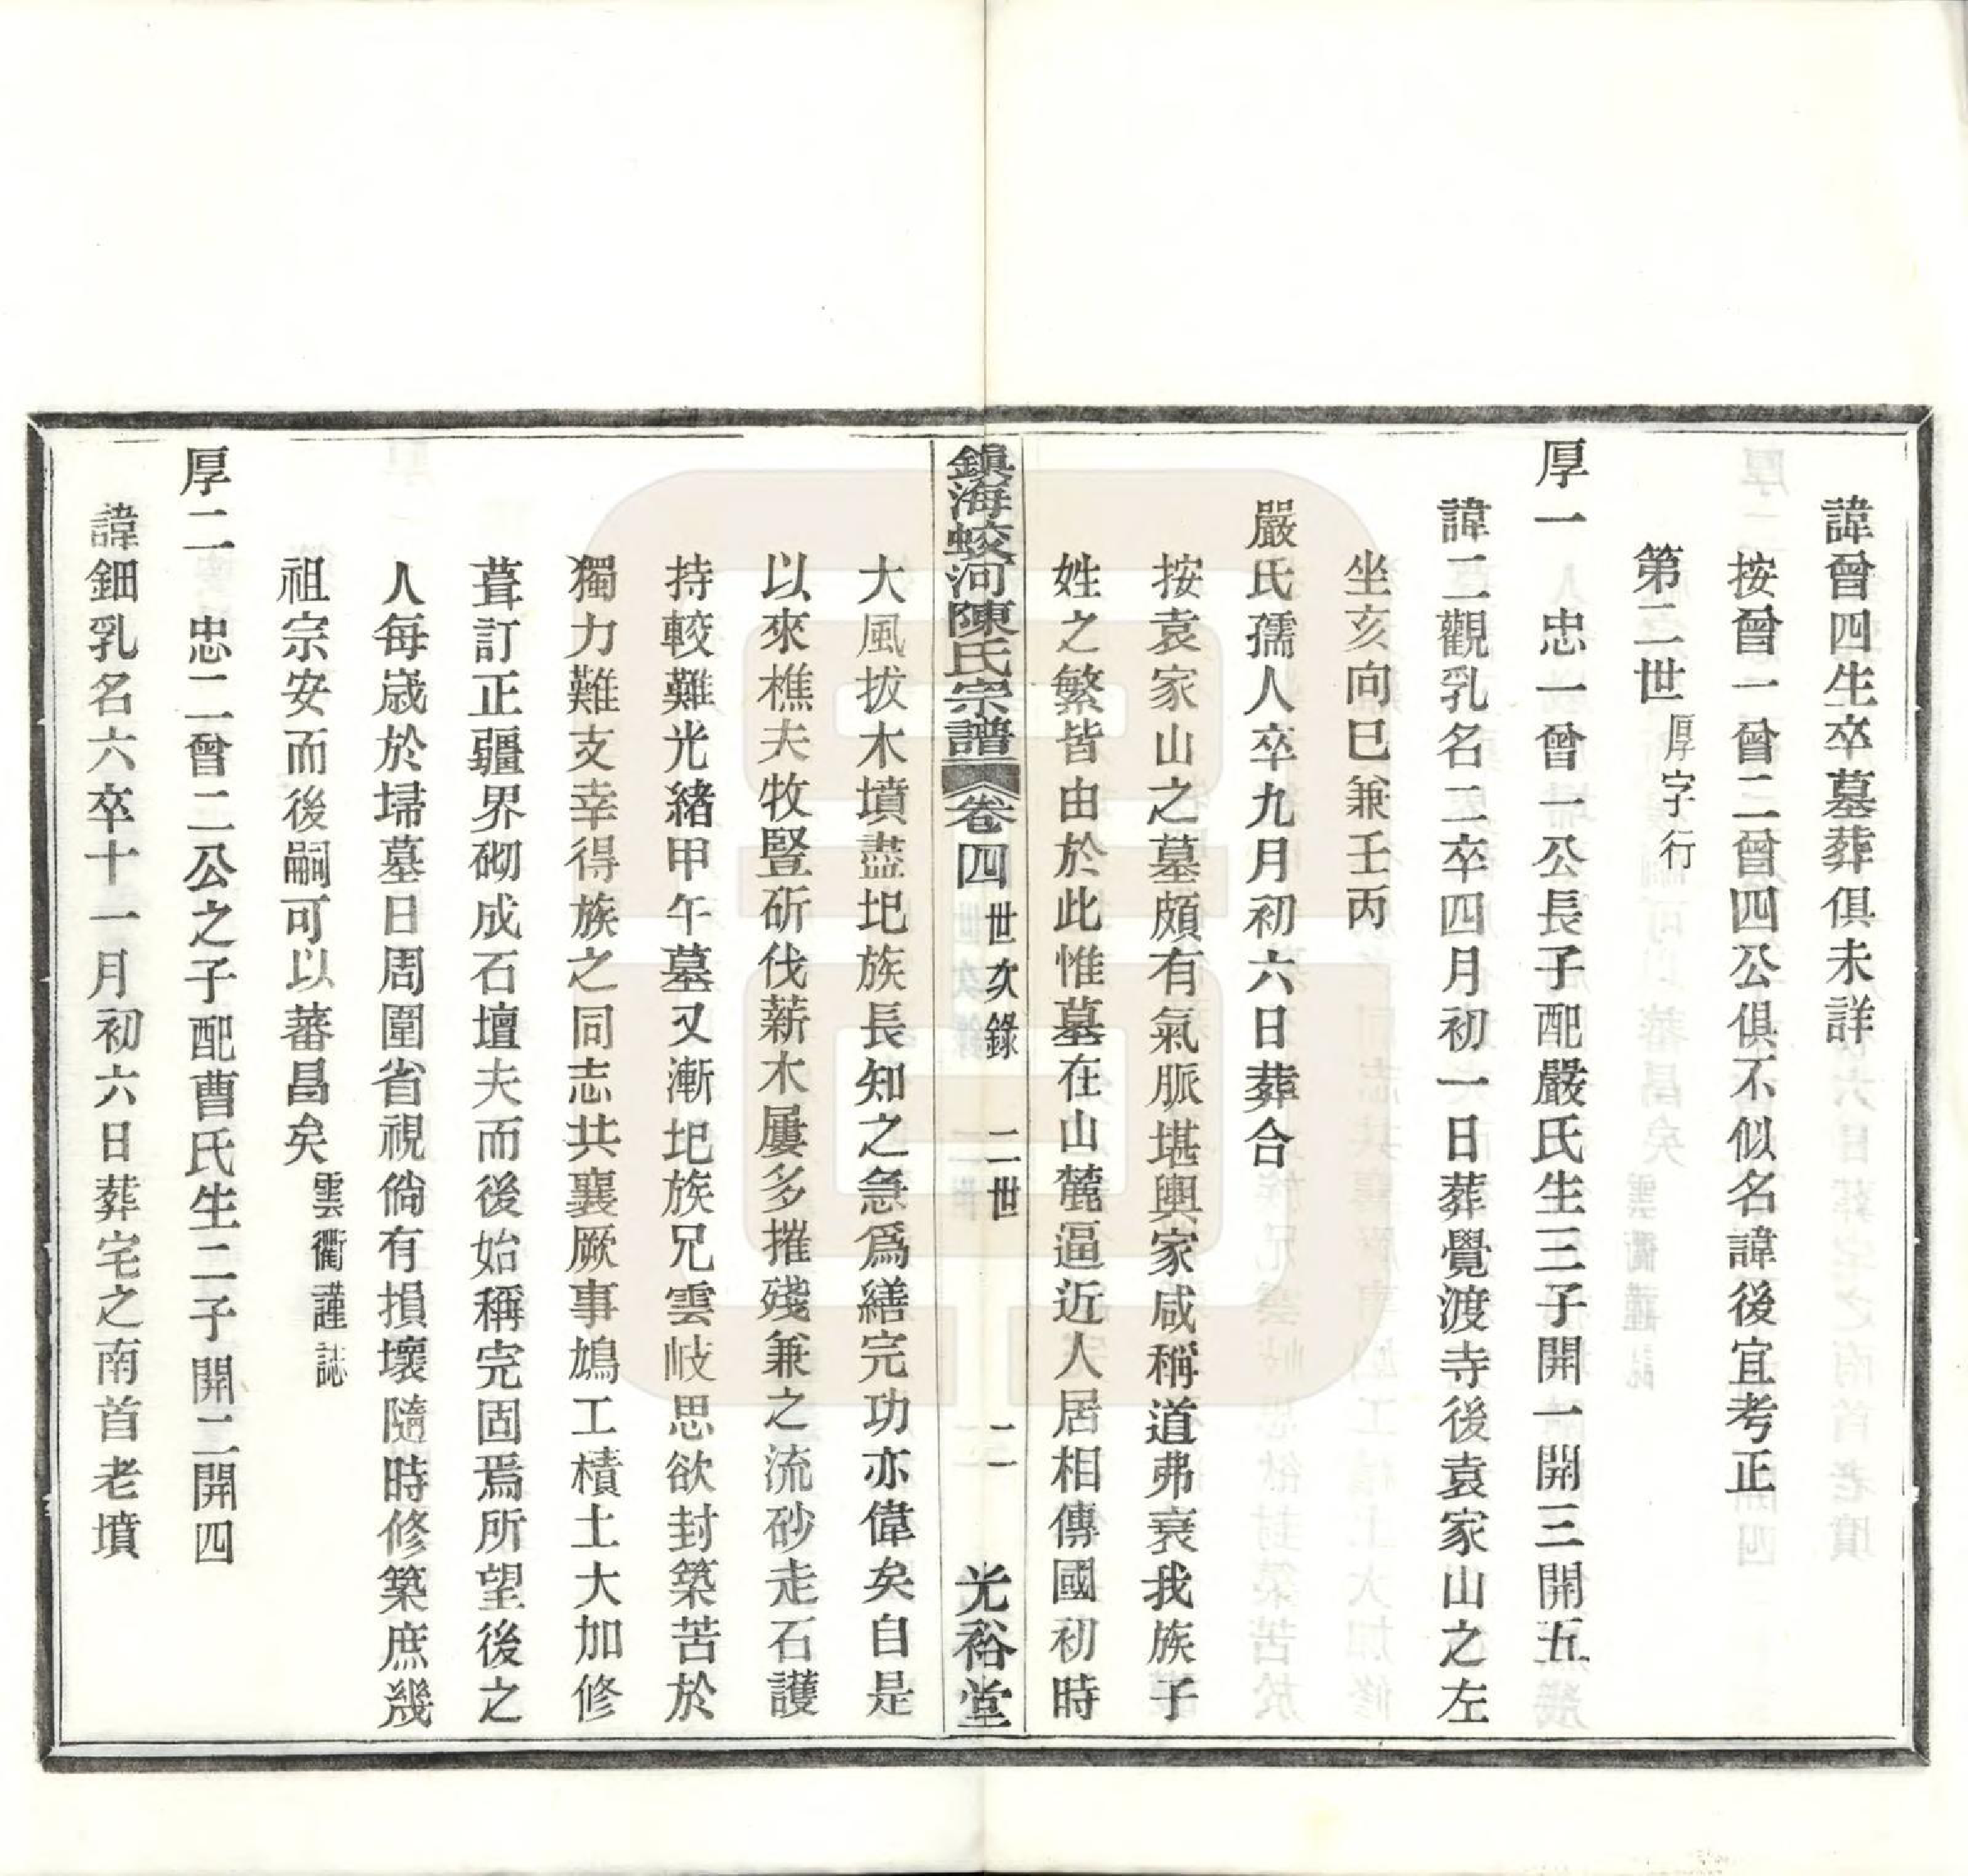 諱曾四生卒墓葬俱未詳
按曾一曾二曾四公俱不似名諱後宜考正
第二世 厚字行
厚一 忠一曾一公長子配嚴氏生三子開一開三開五
諱二觀乳名二卒四月初一日葬覺渡寺後袁家山之左
坐亥向巳兼壬丙
嚴氏孺人卒九月初六日葬合
按袁家山之墓頗有氣脈堪輿家咸稱道弗衰我族子
姓之繁皆由於此惟墓在山麓逼近人居相傳國初時
鎮海蛟河陳氏宗譜 卷四 世次錄 二世 二 光裕堂
大風拔木墳盡圯族長知之急爲繕完功亦偉矣自是
以來樵夫牧豎斫伐薪木屢多摧殘兼之流砂走石護
持較難光緒甲午墓又漸圯族兄雲岐思欲封築苦於
獨力難支幸得族之同志共襄厥事鳩工積土大加修
葺訂正疆界砌成石壇夫而後始稱完固焉所望後之
人每歲於埽墓日周圍省視倘有損壞隨時修築庶幾
祖宗安而後嗣可以蕃昌矣 雲衢謹誌
厚二 忠二曾二公之子配曹氏生二子開二開四
諱鈿乳名六卒十一月初六日葬宅之南首老墳